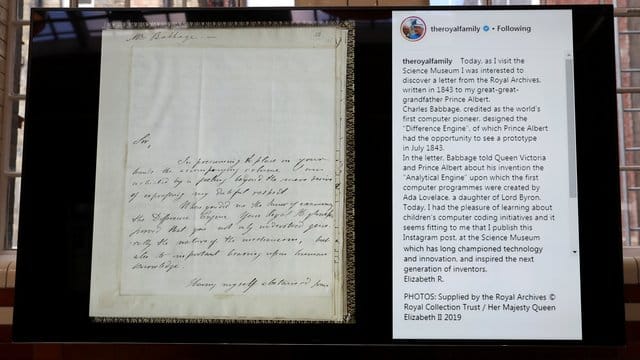 Mr Babbage.
Sir,
In presuming to place in your
hands the accompanying volume I am
actuated by a feeling beyond the mere desire
of expressing my dutiful respect.
When you did me the honor of examining
the Difference Engine Your Royal Highness
proved that you not only understood gene-
rally the nature of the mechanism, but
also its important bearing upon human
knowledge.
Having myself abstained from
theroyalfamily • Following
theroyalfamily Today, as I visit the
Science Museum I was interested to
discover a letter from the Royal Archives,
written in 1843 to my great-great-
grandfather Prince Albert.
Charles Babbage, credited as the world's
first computer pioneer, designed the
"Difference Engine", of which Prince Albert
had the opportunity to see a prototype
in July 1843.
In the letter, Babbage told Queen Victoria
and Prince Albert about his invention the
"Analytical Engine" upon which the first
computer programmes were created by
Ada Lovelace, a daughter of Lord Byron.
Today, I had the pleasure of learning about
children's computer coding initiatives and it
seems fitting to me that I publish this
Instagram post, at the Science Museum
which has long championed technology
and innovation, and inspired the next
generation of inventors.
Elizabeth R.
PHOTOS: Supplied by the Royal Archives ©
Royal Collection Trust / Her Majesty Queen
Elizabeth II 2019